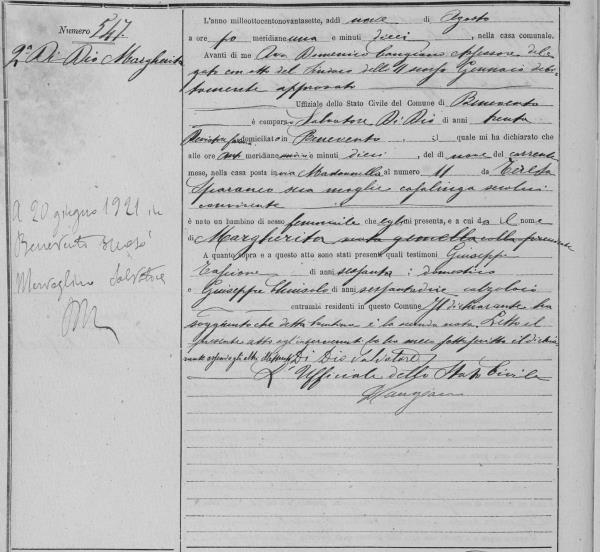 Numero 547
2ª Di Dio Margherita
A 20 giugno 1921 in
Benevento sposò
Salvatore
L'anno milleottocentonovantasette, addì nove di Agosto
a ore po meridiane una e minuti dieci, nella casa comunale.
Avanti di me Avv. Domenico Cangiano Assessore dele
gato con atto del Sindaco dello Gennaio debi
tamente approvato
Uffiziale dello Stato Civile del Comune di Benevento
è comparso Salvatore Di Dio di anni trenta
domiciliato in Benevento quale mi ha dichiarato che
alle ore meridiane minuti dieci, del dì nove del corrente
mese, nella casa posta in via Maddonnella al numero 11 da Teresa
sua moglie casalinga seco lui
convivente
è nato un bambino di sesso femminile che egli mi presenta, e a cui dà il nome
di Margherita nata gemella colla precedente
A quanto sopra e a questo atto sono stati presenti quali testimoni Giuseppe
di anni sessanta domestico
e Giuseppe di anni sessantadue calzolaio
entrambi residenti in questo Comune Il dichiarante ha
soggiunto che detta bambina è la seconda nata. Letto il
presente atto agl'intervenuti lo ha meco sottoscritto il dichia
rante Di Dio Salvatore
L'Ufficiale dello Stato Civile
Cangiano